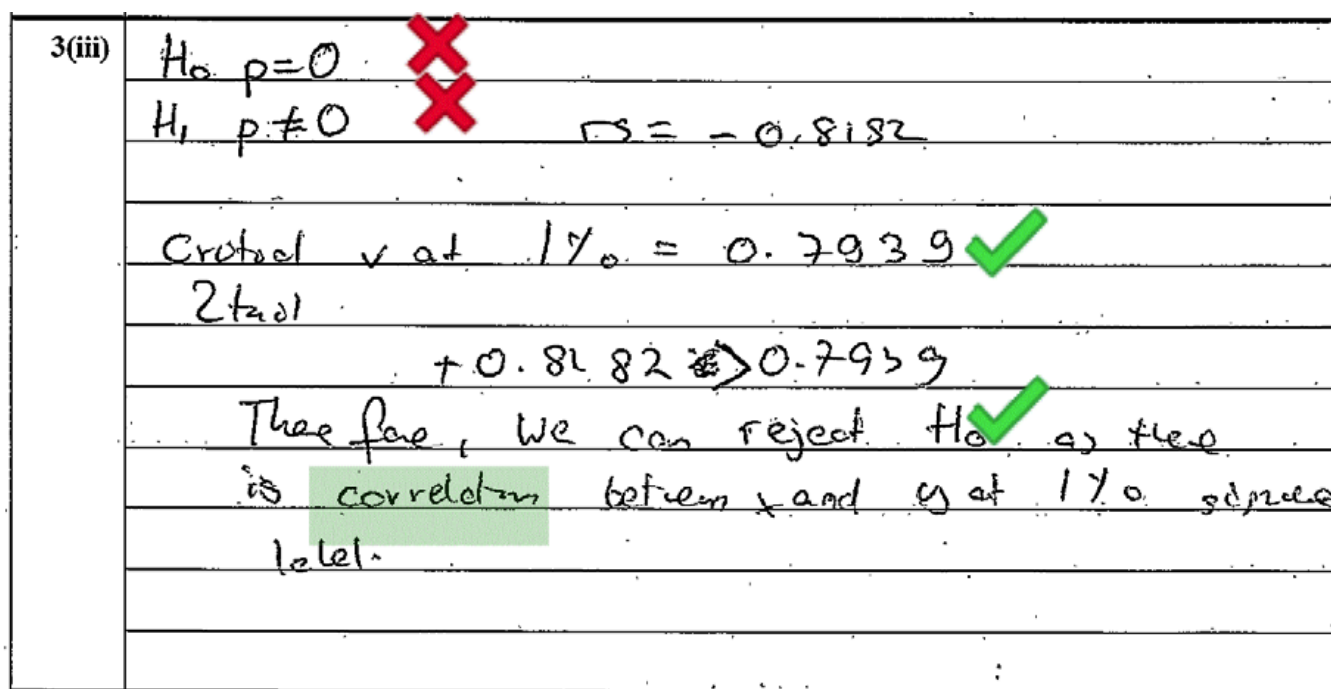 3(iii)
H₀ p=0
H₁ p≠0 rs = - 0.8182
Critical v at 1% = 0.7939
2tail
+ 0.8282 > 0.7939
Therefore, we can reject H₀ as there
is correlation between x and y at 1%
level.